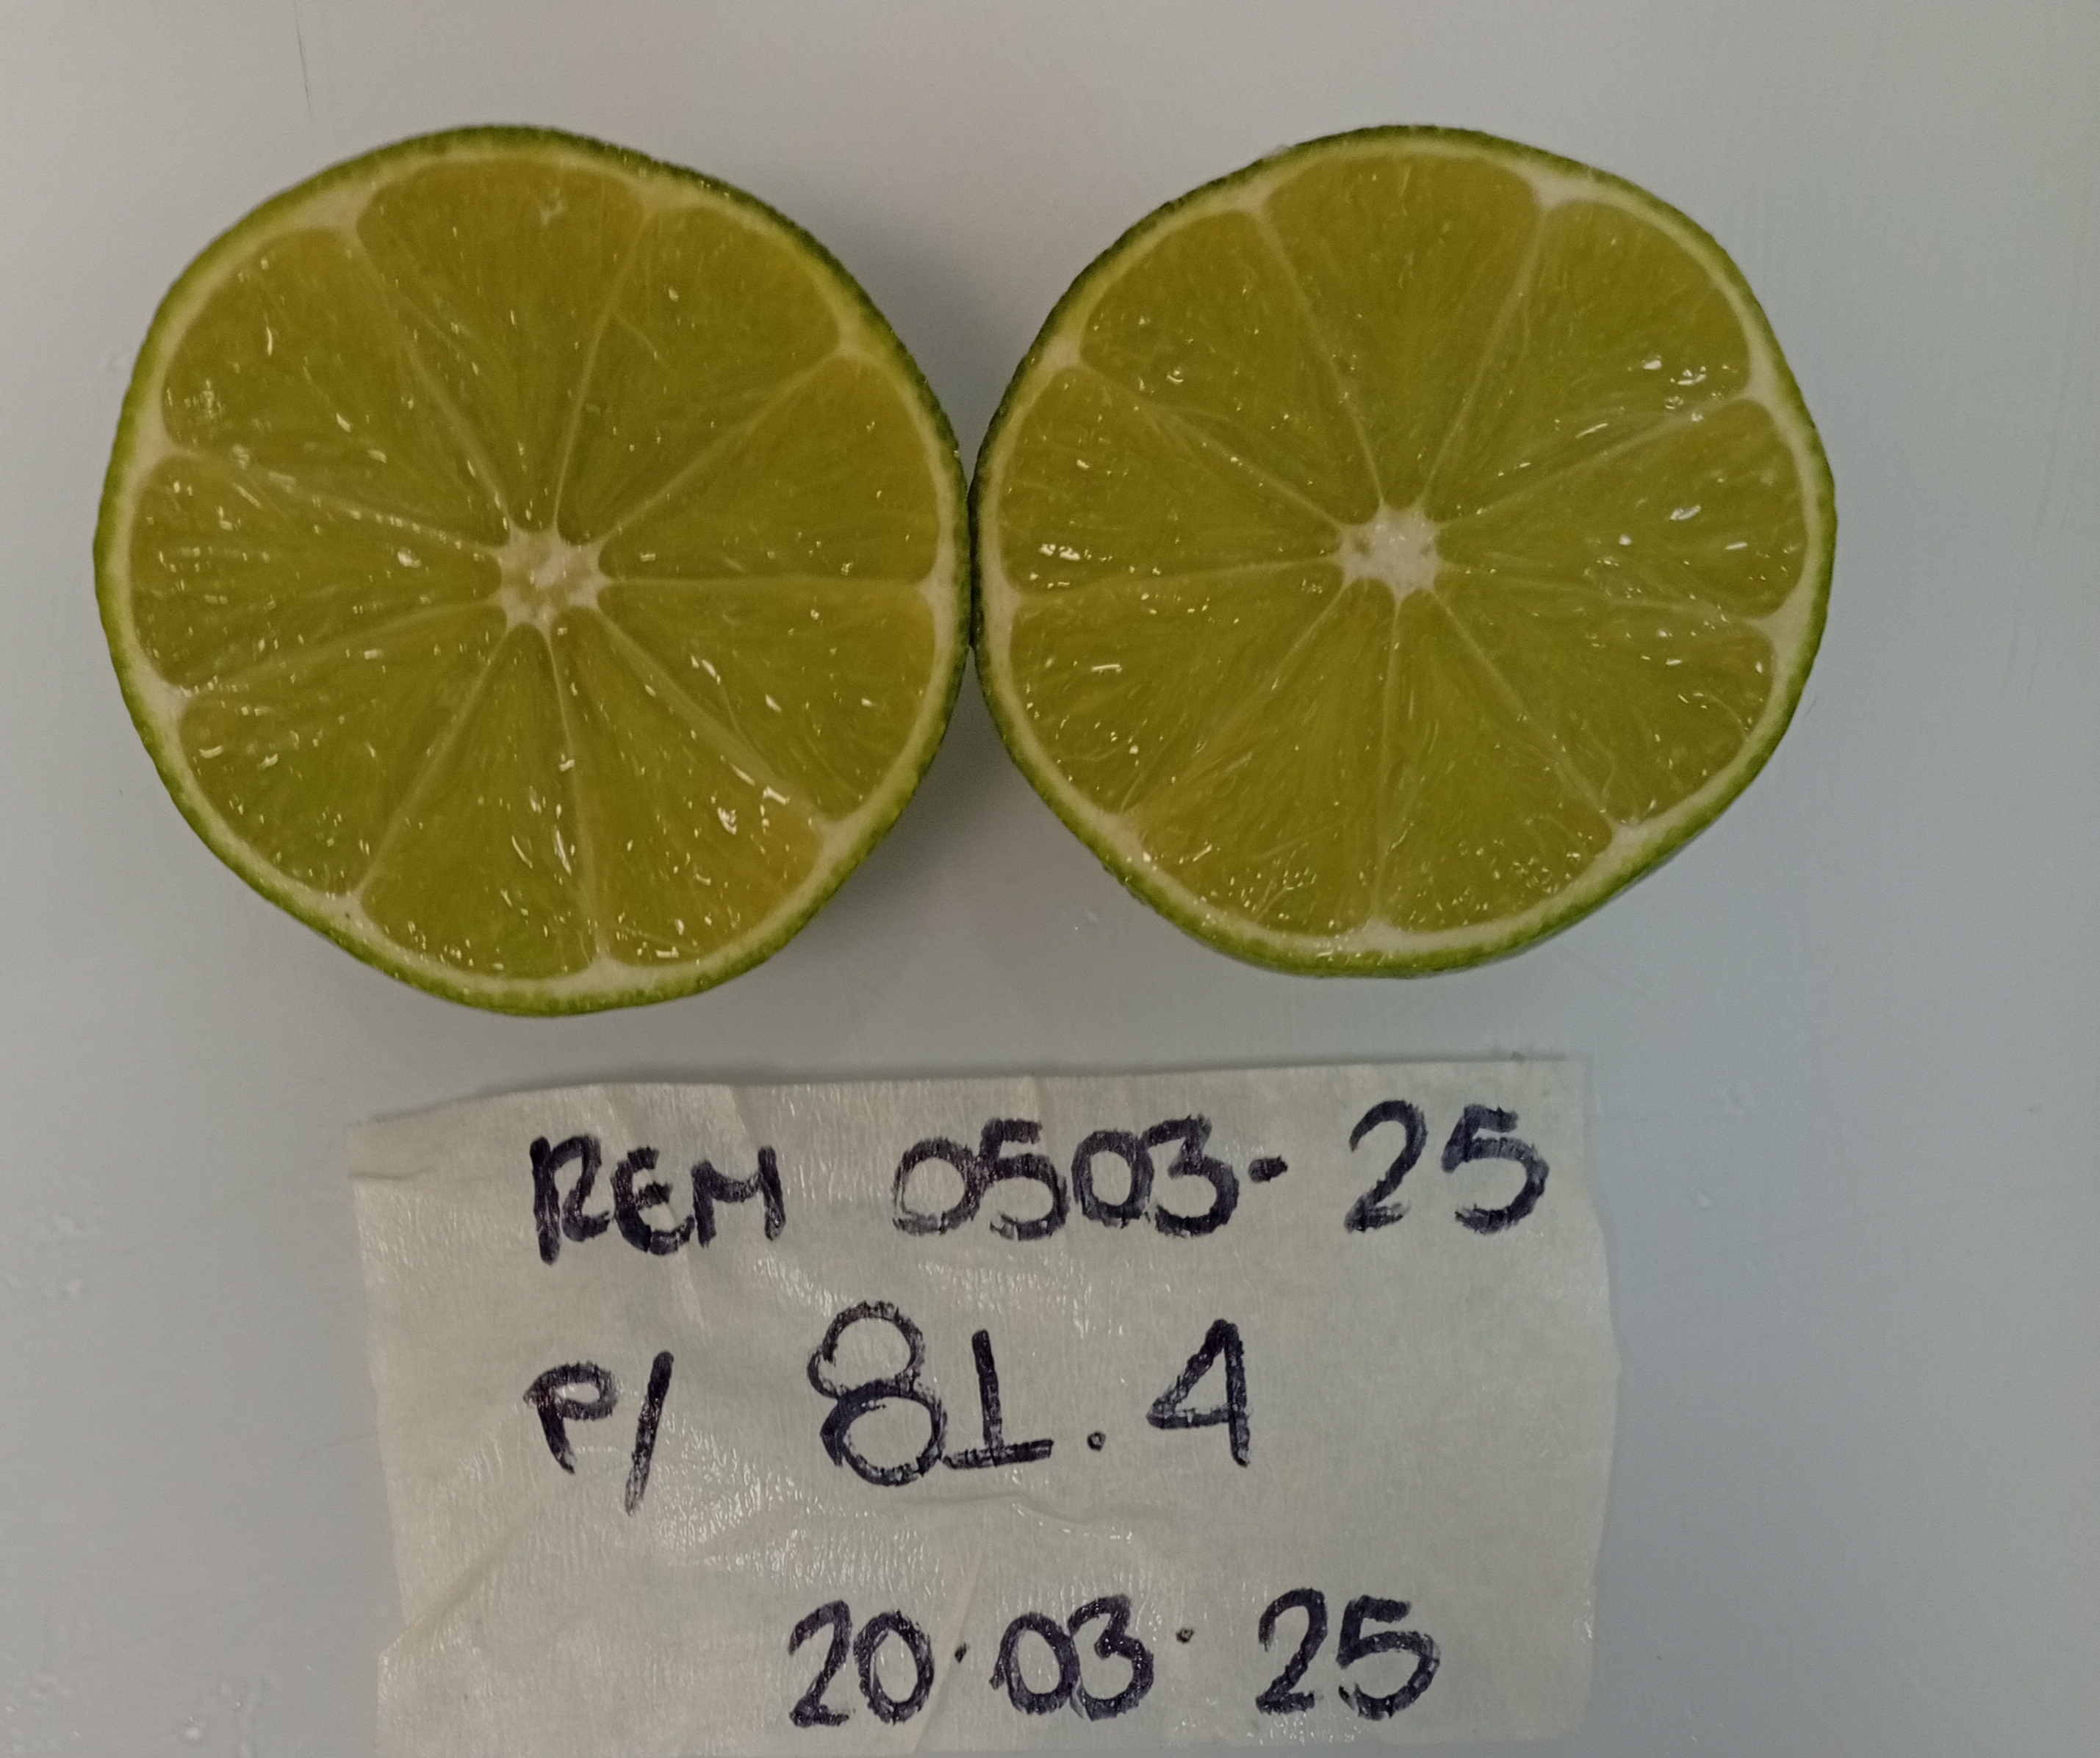 REM 0503-25
P/ 81.4
20.03.25